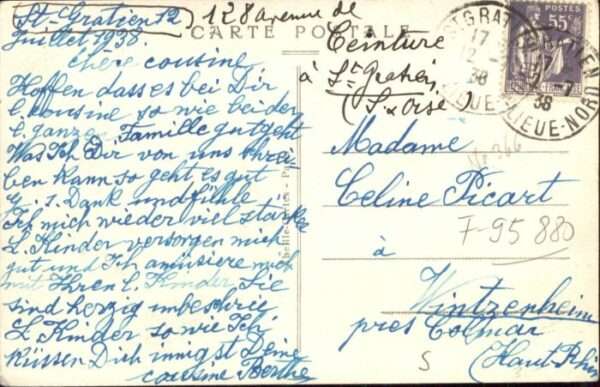 St-Gratien 12
Juillet 1938.
128 avenue de
Ceinture
à St Gratien
(S & Oise)
CARTE POSTALE
chère cousine
Hoffen dass es bei Dir
l. cousine so wie bei der
l. ganza Familie gut geht
Was Ich Dir von uns schrei-
ben kann so geht es gut
G. s. Dank und fühle
Ich mich wieder viel stärker
L. Kinder versorgen mich
gut und Ich amüsiere mich
mit Ihren l. Kinder, Sie
sind herzig
L. Kinder so wie Ich
küssen Dich innigst Deine
cousine Berthe
Madame
Celine Picart
à
Wintzenheim
pres Colmar
(Haut-Rhin
7-95 880
S
POSTES
55c
ST GRATIEN
17
12 -
38
LIEUE-NORD